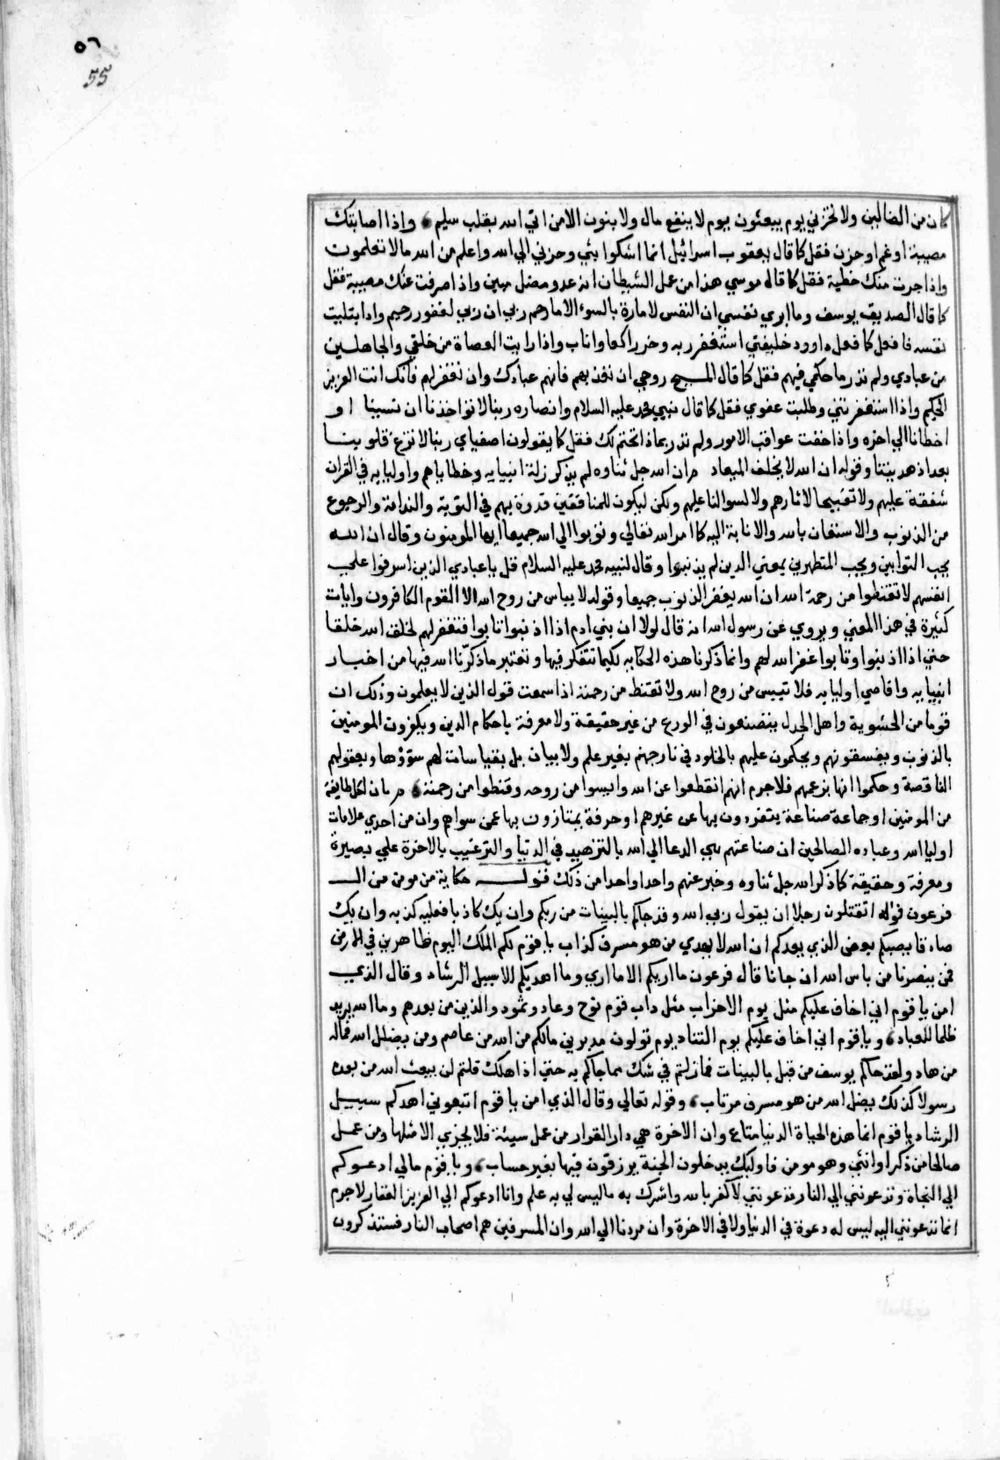 ٥٦
55
كان من الضالين ولا تخزني يوم يبعثون يوم لا ينفع مال ولا بنون الا من اتي الله بقلب سليم واذا اصابتك
مصيبة او غم او حزن فقل كما قال يعقوب اسرائيل انما اشكوا بثي وحزني الي الله واعلم من الله ما لا تعلمون
واذا جرت منك خطية فقل كما قال موسي هذا من عمل الشيطان انه عدو مضل مبين واذا صرفت عنك مصيبة فقل
كما قال الصديق يوسف وما ابري نفسي ان النفس لامارة بالسوء الا ما رحم ربي ان ربي لغفور رحيم واذا ابتليت
نفسه فافعل كما فعل داوود خليفتي استغفر ربه وخر راكعا واناب واذا رايت العصاة من خلقي والجاهلين
من عبادي ولم تدر ما حكمي فيهم فقل كما قال المسيح روحي ان تعذبهم فانهم عبادك وان تغفر لهم فانك انت العزيز
الحكيم واذا استغفرتني وطلبت عفوي فقل كما قال نبيي محمد عليه السلام وانصاره ربنا لا تواخذنا ان نسينا او
اخطانا الي اخره واذا خفت عواقب الامور ولم تدر بماذا اختم لك فقل كما يقولون اصفياي ربنا لا تزغ قلوبنا
بعد اذ هديتنا وقوله ان الله لا يخلف الميعاد من ان الله جل ثناوه لم يذكر زلة انبيايه وخطاياهم واوليايه في القران
شفقة عليهم ولا تقبيحا لاثارهم ولا لسوالنا عليهم ولكن ليكون للمنافقين قدوة بهم في التوبة والندامة والرجوع
من الذنوب والاستغفار بالله والانابة اليه كما امر الله تعالي وتوبوا الي الله جميعا ايها المومنون وقال ان الله
يحب التوابين ويحب المتطهرين يعني الذين لم يذنبوا وقال لنبيه محمد عليه السلام قل يا عبادي الذين اسرفوا علي
انفسهم لا تقنطوا من رحمة الله ان الله يغفر الذنوب جميعا وقوله لا يياس من روح الله الا القوم الكافرون وايات
كثيرة في هذا المعني ويروي عن رسول الله انه قال لولا ان بني ادم اذا اذنبوا تابوا فتغفر لهم لخلق الله خلقا
حتي اذا اذنبوا وتابوا غفر الله لهم وانما ذكرنا هذه الحكايه لكيما تتفكر فيها وتعتبر ما ذكرنا الله فيها من اخبار
انبيايه واقاصي اوليايه فلا تييس من روح الله ولا تقنط من رحمته اذا سمعت قول الذين لا يعلمون وذلك ان
قوما من الحشوية واهل الجدل يتصنعون في الورع من غير حقيقة ولا معرفة باحكام الدين ويكفرون المومنين
بالذنوب ويفسقونهم ويحكمون عليهم بالخلود في نار جهنم بغير علم ولا بيان بل بقياسات لهم سوؤها وبعقولهم
الناقصة وحكموا انها بزعمهم فلا جرم انهم انقطعوا عن الله وايسوا من روحه وقنطوا من رحمته من ان لكل طايفة
من المومنين او جماعة صناعة يتفردون بها عن غيرهم او حرفة يمتازون بها عمن سواهم وان من احدي علامات
اوليا الله وعباده الصالحين ان صناعتهم هي الدعا الي الله بالتزهيد في الدنيا والترغيب بالاخرة علي بصيرة
ومعرفة وحقيقة كما ذكر الله جل ثناوه وخبر عنهم واحدا واحدا من ذلك قوله حكاية من مومن من ال
فرعون قوله اتقتلون رجلا ان يقول ربي الله وقد جاكم بالبينات من ربكم وان يك كاذبا فعليه كذبه وان يك
صادقا يصبكم بعض الذي يعدكم ان الله لا يهدي من هو مسرف كذاب يا قوم لكم الملك اليوم ظاهرين في الارض
فمن ينصرنا من باس الله ان جانا قال فرعون ما اريكم الا ما اري وما اهديكم الا سبيل الرشاد وقال الذي
امن يا قوم اني اخاف عليكم مثل يوم الاحزاب مثل داب قوم نوح وعاد وثمود والذين من بعدهم وما الله يريد
ظلما للعباد ويا قوم اني اخاف عليكم يوم التناد يوم تولون مدبرين مالكم من الله من عاصم ومن يضلل الله فماله
من هاد ولقد جاكم يوسف من قبل بالبينات فما زلتم في شك مما جاكم به حتي اذا هلك قلتم لن يبعث الله من بعده
رسولا كذلك يضل الله من هو مسرف مرتاب وقوله تعالي وقال الذي امن يا قوم اتبعوني اهدكم سبيل
الرشاد يا قوم انما هذه الحياة الدنيا متاع وان الاخرة هي دار القرار من عمل سيئة فلا يجزي الا مثلها ومن عمل
صالحا من ذكر او انثي وهو مومن فاوليك يدخلون الجنة يرزقون فيها بغير حساب ويا قوم مالي ادعوكم
الي النجاة وتدعونني الي النار تدعونني لاكفر بالله واشرك به ما ليس لي به علم وانا ادعوكم الي العزيز الغفار لا جرم
انما تدعونني اليه ليس له دعوة في الدنيا ولا في الاخرة وان مردنا الي الله وان المسرفين هم اصحاب النار فستذكرون